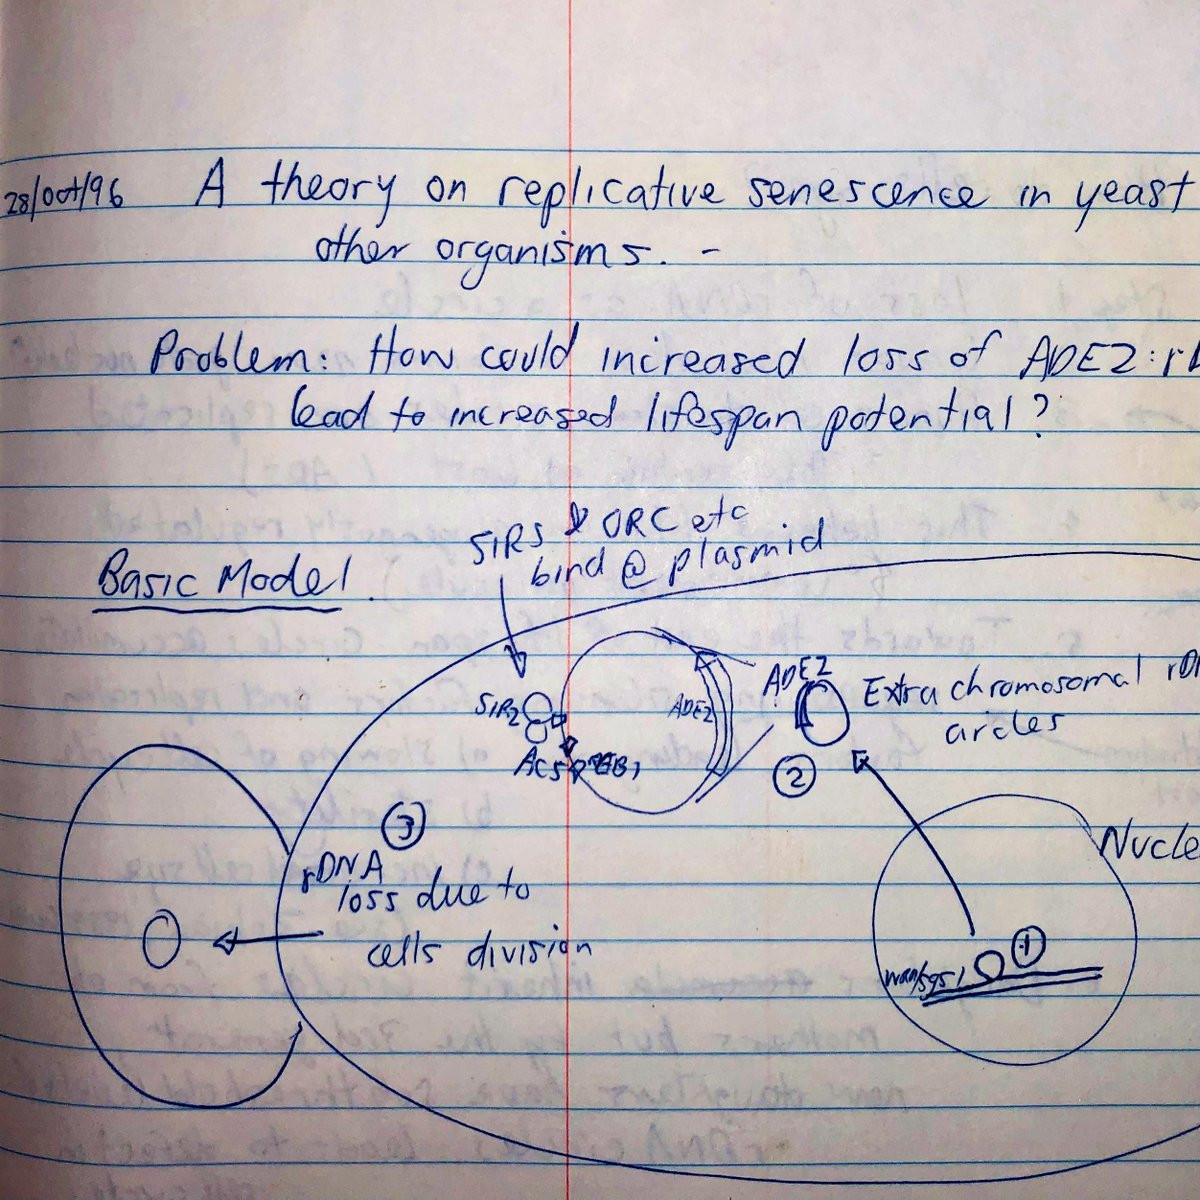 28/Oct/96 A theory on replicative senescence in yeast
other organisms. -
Problem: How could increased loss of ADE2:r
lead to increased lifespan potential?
SIRS & ORC etc
bind @ plasmid
Basic Model.
ADE2
SIR2
ADE2
Extra chromosomal rD
circles
ACS
2
3
Nucle
rDNA
loss due to
cells division
1
wrn/sgs1